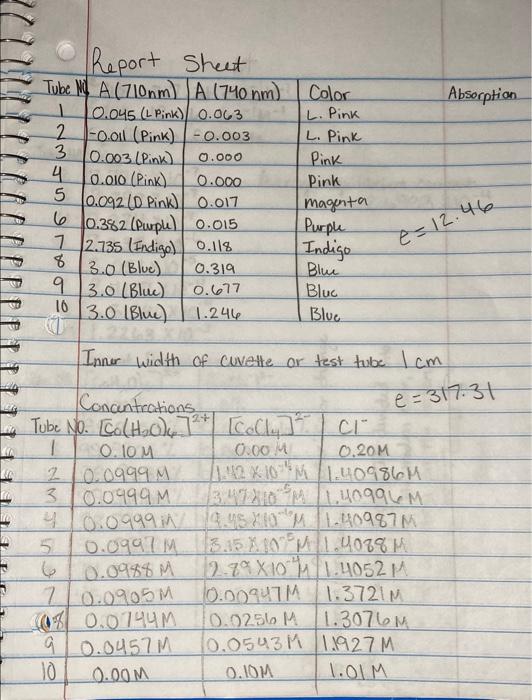 Report Sheet
Tube No A (710nm) A (740nm) Color Absorption
1 0.045 (L Pink) 0.063 L. Pink
2 -0.011 (Pink) -0.003 L. Pink
3 0.003 (Pink) 0.000 Pink
4 0.010 (Pink) 0.000 Pink
5 0.092 (D Pink) 0.017 magenta
6 0.382 (Purple) 0.015 Purple
e = 12.46
7 2.735 (Indigo) 0.118 Indigo
8 3.0 (Blue) 0.319 Blue
9 3.0 (Blue) 0.677 Blue
10 3.0 (Blue) 1.246 Blue
Inner width of cuvette or test tube 1 cm
e = 317.31
Concentrations
Tube No. [Co(H2O)6]2+ [CoCl4]2- Cl-
1 0.10M 0.00M 0.20M
2 0.0999M 1.40986M
3 0.0999M 1.40996M
4 0.0999M 1.40987M
5 0.0997M 3.15 X 10-5M 1.4088M
6 0.0988M 2.89 X 10-4M 1.4052M
7 0.0905M 0.00947M 1.3721M
8 0.0744M 0.0256M 1.3076M
9 0.0457M 0.0543M 1.1927M
10 0.00M 0.10M 1.01M